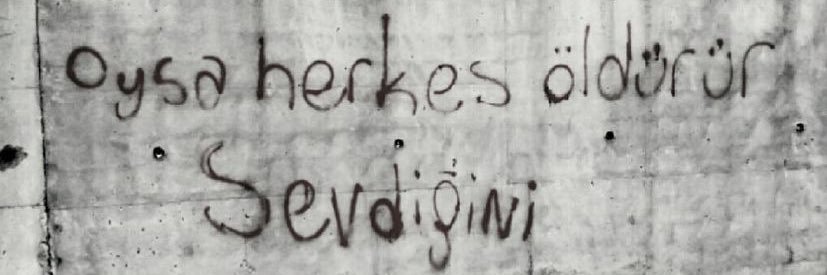 Oysa herkes öldürür
Sevdiğini